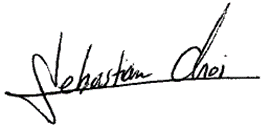 Sebastian Choi